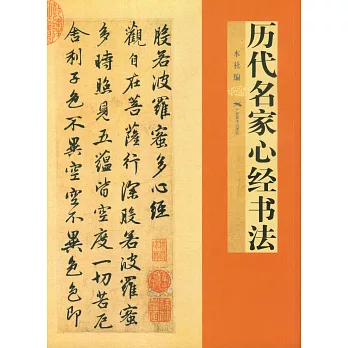 般若波羅蜜多心經
觀自在菩薩行深般若波羅蜜
多時照見五蘊皆空度一切苦厄
舍利子色不異空空不異色色即
历代名家心经书法
本社编